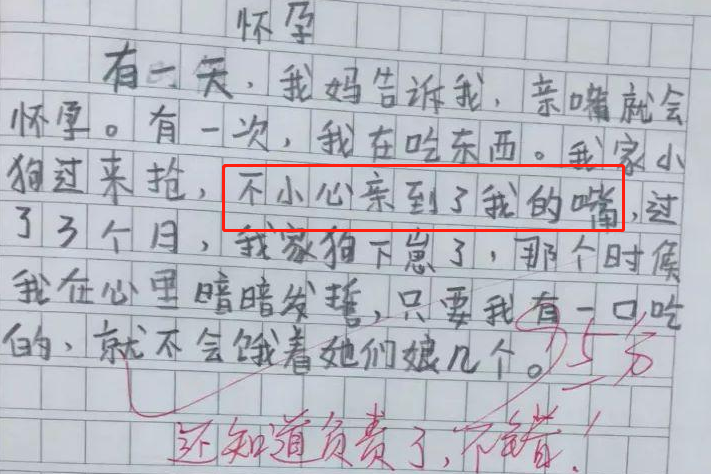 怀孕
有一天，我妈告诉我，亲嘴就会
怀孕。有一次，我在吃东西。我家小
狗过来抢，不小心亲到了我的嘴，过
了3个月，我家狗下崽了，那个时候
我在心里暗暗发誓，只要我有一口吃
的、就不会饿着她们娘几个。
95分
还知道负责了，不错！